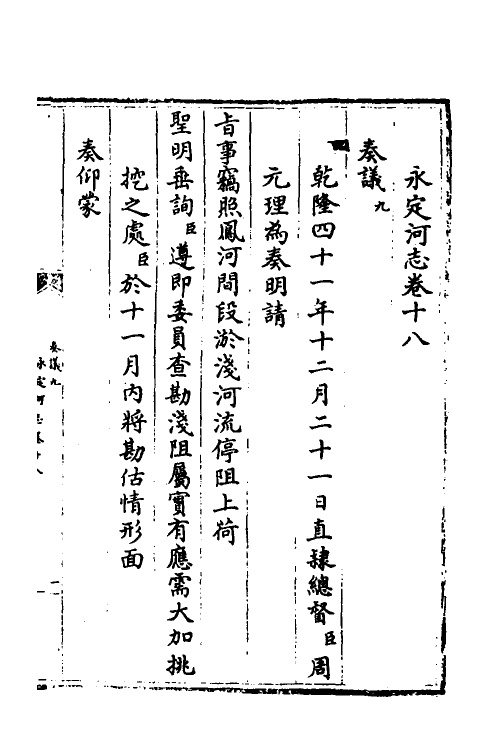 永定河志卷十八
奏議九
乾隆四十一年十二月二十一日直隸總督臣周
元理為奏明請
旨事竊照鳳河間段淤淺河流停阻上荷
聖明垂詢臣遵即委員查勘淺阻屬實有應需大加挑
挖之處臣於十一月內將勘估情形面
奏仰蒙
奏議九
永定河志卷十八
一